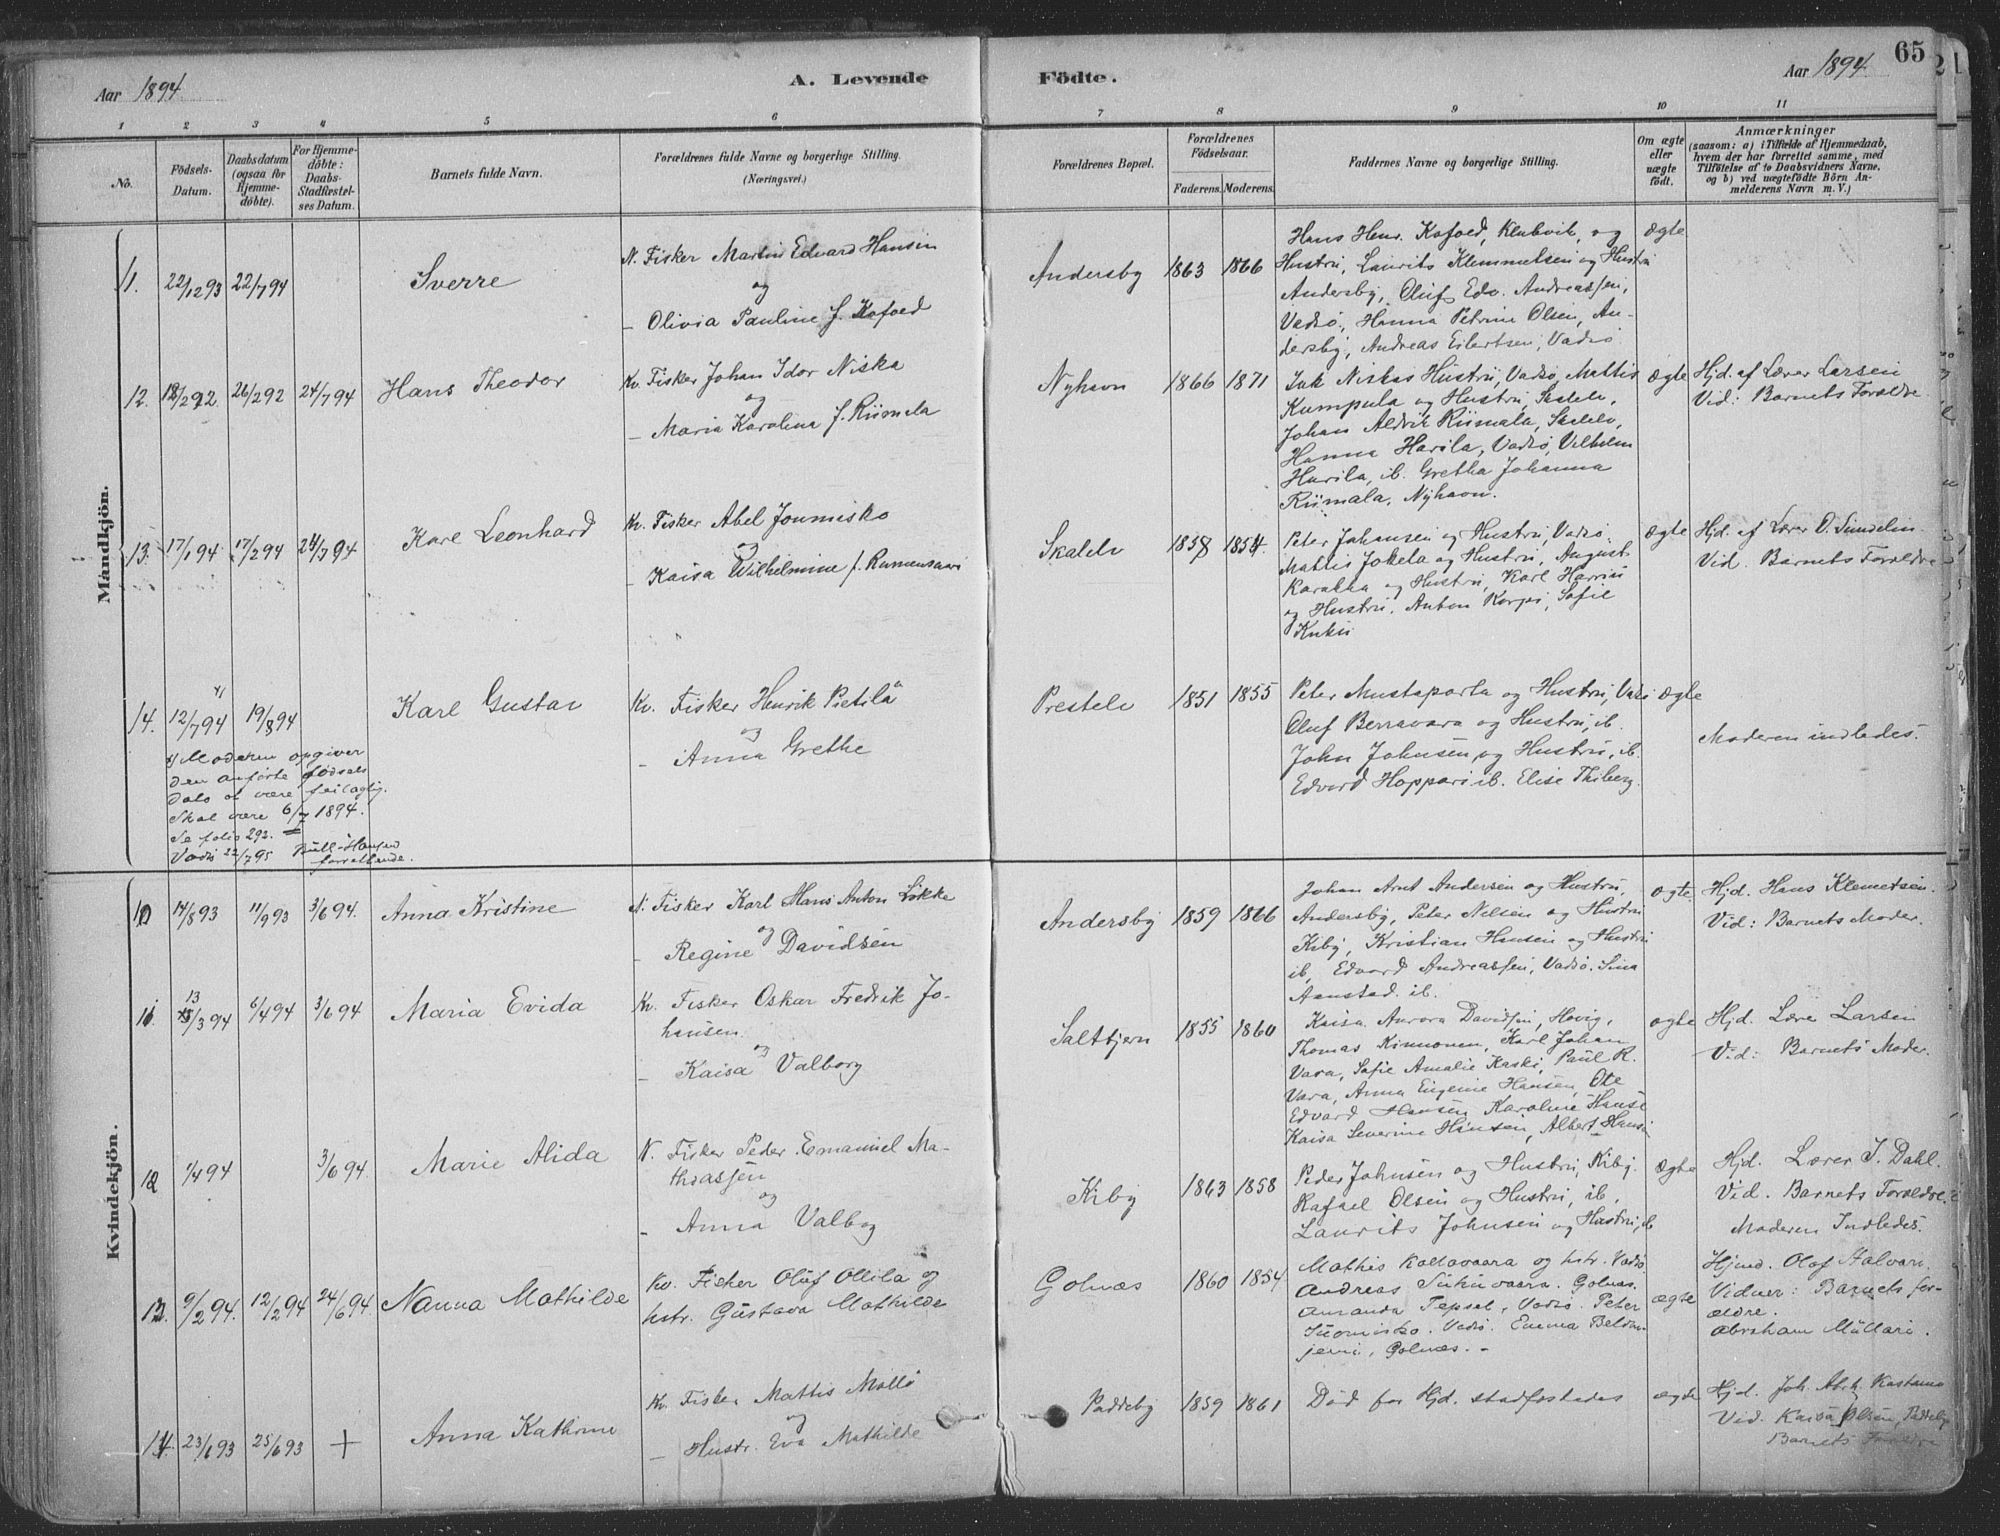 65
Aar 1894
A. Levende
Födte.
Aar 1894
1 2 3 4 5 6 7 8 9 10 11
No.
Födsels-
Datum.
Daabsdatum
(ogsaa for
Hjemme-
döbte).
For Hjemme-
döbte:
Daabs-
Stadfæstel-
ses Datum.
Barnets fulde Navn.
Forældrenes fulde Navne og borgerlige Stilling.
(Næringsvei.)
Forældrenes Bopæl.
Forældrenes
Födselsaar.
Faderens. Moderens.
Faddernes Navne og borgerlige Stilling.
Om ægte
eller
uægte
födt.
Anmærkninger
(saasom: a) i Tilfælde af Hjemmedaab,
hvem der har forrettet samme, med
Tilföielse af to Daabsvidners Navne,
og b) ved uægtefödte Börn An-
melderens Navn m. V.)
Mandkjön.
11. 22/12 93 22/7 94
Sverre
N. Fisker Martin Edvard Hansen
og
- Olivia Pauline f. Kofoed
Andersby 1863 1866
Hans Henr. Kofoed, Klubvik, og
Hustru, Laurits Klemmetsen og Hustru
Andersby, Oluf Edv. Andreassen,
Vadsö, Hanna Petrine Olsen, An-
dersby, Andreas Eilertsen, Vadsö
Ægte
12. 26/2 92 24/7 94
Hans Theodor
Kv. Fisker Johan Idor Niska
og
- Maria Karolina f. Riimala
Nyhavn 1866 1871
Niskas Hustru, Vadsö, Mattis
Kumpula og Hustru, Skalelv,
Johan Aldrik Riimala, Skalelv,
Hanna Harila, Vadsö, Vilhelm
Harila, ib. Gretha Johanna
Riimala, Nyhavn.
Ægte
Hjd. af Lærer Larsen
Vid: Barnets Forældre
13. 17/1 94 17/2 94 24/7 94
Karl Leonhard
Kv. Fisker Abel Jounisko
og
- Kaisa Wilhelmine f.
Skalelv 1858 1854.
Peter Johansen og Hustru, Vadsö.
Mattis Jokela og Hustru, August
Karakka og Hustru, Karl Harriu
og Hustru. Anton Korpi, Sofie
Kuku
Ægte
Hjd. af Lærer O. Sundelin
Vid. Barnets Forældre
14. 12/7 94 19/8 94
Karl Gustav
Kv. Fisker Henrik Pietilä
og
- Anna Grethe
Prestelv 1851 1855
Peter Mustaparta og Hustru, Vadsö
Oluf Berravara og Hustru, ib.
John Johnsen og Hustru, ib.
Edvard Hoppari ib. Elise Thiberg.
Ægte
Moderen indledes.
Moderen opgiver
den anførte fødsels
Dato at være feilagtig.
Skal være 6/7 1894.
Se folio 292.
Vadsö 22/7 95 Bull-Hansen
forrettende.
Kvindekjön.
10 14/8 93 11/9 93 3/6 94.
Anna Kristine
N. Fisker Karl Hans Anton Løkke
og
- Regine Davidsen
Andersby 1859 1866
Johan Arnt Andersen og Hustru,
Andersby, Peter Nilsen og Hustru
Kiby, Kristian Hansen og Hustru
ib, Edvard Andreassen, Vadsö. Sina
Aanstad. ib.
ægte
Hjd. Hans Klemetsen.
Vid: Barnets Moder.
11. 13/3 94 6/4 94 3/6 94
Maria Evida
Kv. Fisker Oskar Fredrik Jo-
hansen
og
- Kaisa Valborg
Saltbjern 1855 1860
Kaisa Aurora Davidsen, Hovig,
Thomas Kinnonen, Karl Johan
Vara, Sofie Amalie Kaski, Paul R.
Vara, Anna Eugenie Hansen, Ote
Edvard Hansen, Karoline Hanse
Kaisa Severine Hansen, Albert Hansen
ægte
Hjd. Lære Larsen
Vid: Barnets Moder.
12 1/4 94 3/6 94.
Marie Alida
N. Fisker Peder Emanuel Ma-
thiassen
og
- Anna Valbog
Kiby 1863 1858
Peder Johnsen og Hustru, Kiby.
Rafael Olsen og Hustru, ib.
Laurits Johnsen og Hustru, ib
Ægte
Hjd. Lærer I. Dahl.
Vid. Barnets Forældre.
Moderen Indledes.
13. 9/2 94. 12/2 94 24/6 94
Nanna Mathilde
Kv. Fisker Oluf Ollila og
hstr. Gustava Mathilde
Golnæs 1860 1854
Mathis Kollavaara og hstr. Vadsö
Andreas Sukuvaara. Golnæs.
Amanda Tepsel, Vadsö. Peter
Suomisko. Vadsö. Emma Beldon-
jemi, Golnæs. -
ægte
Hjmd. Olof Halvari.
Vidner: Barnets for-
ældre.
Abraham Mullari.
14. 23/6 93 25/6 93 +
Anna Kathrine
Kv. Fisker Mattis Mällö
og
- Hustr. Eva Mathilde
Paddeby 1859 1861
Död før Hjd. stadfæstedes
ægte
Hjd. Joh. Abrh. Kostamo
Vid. Kaisa Olsen, Paddeby
Barnets Forældre